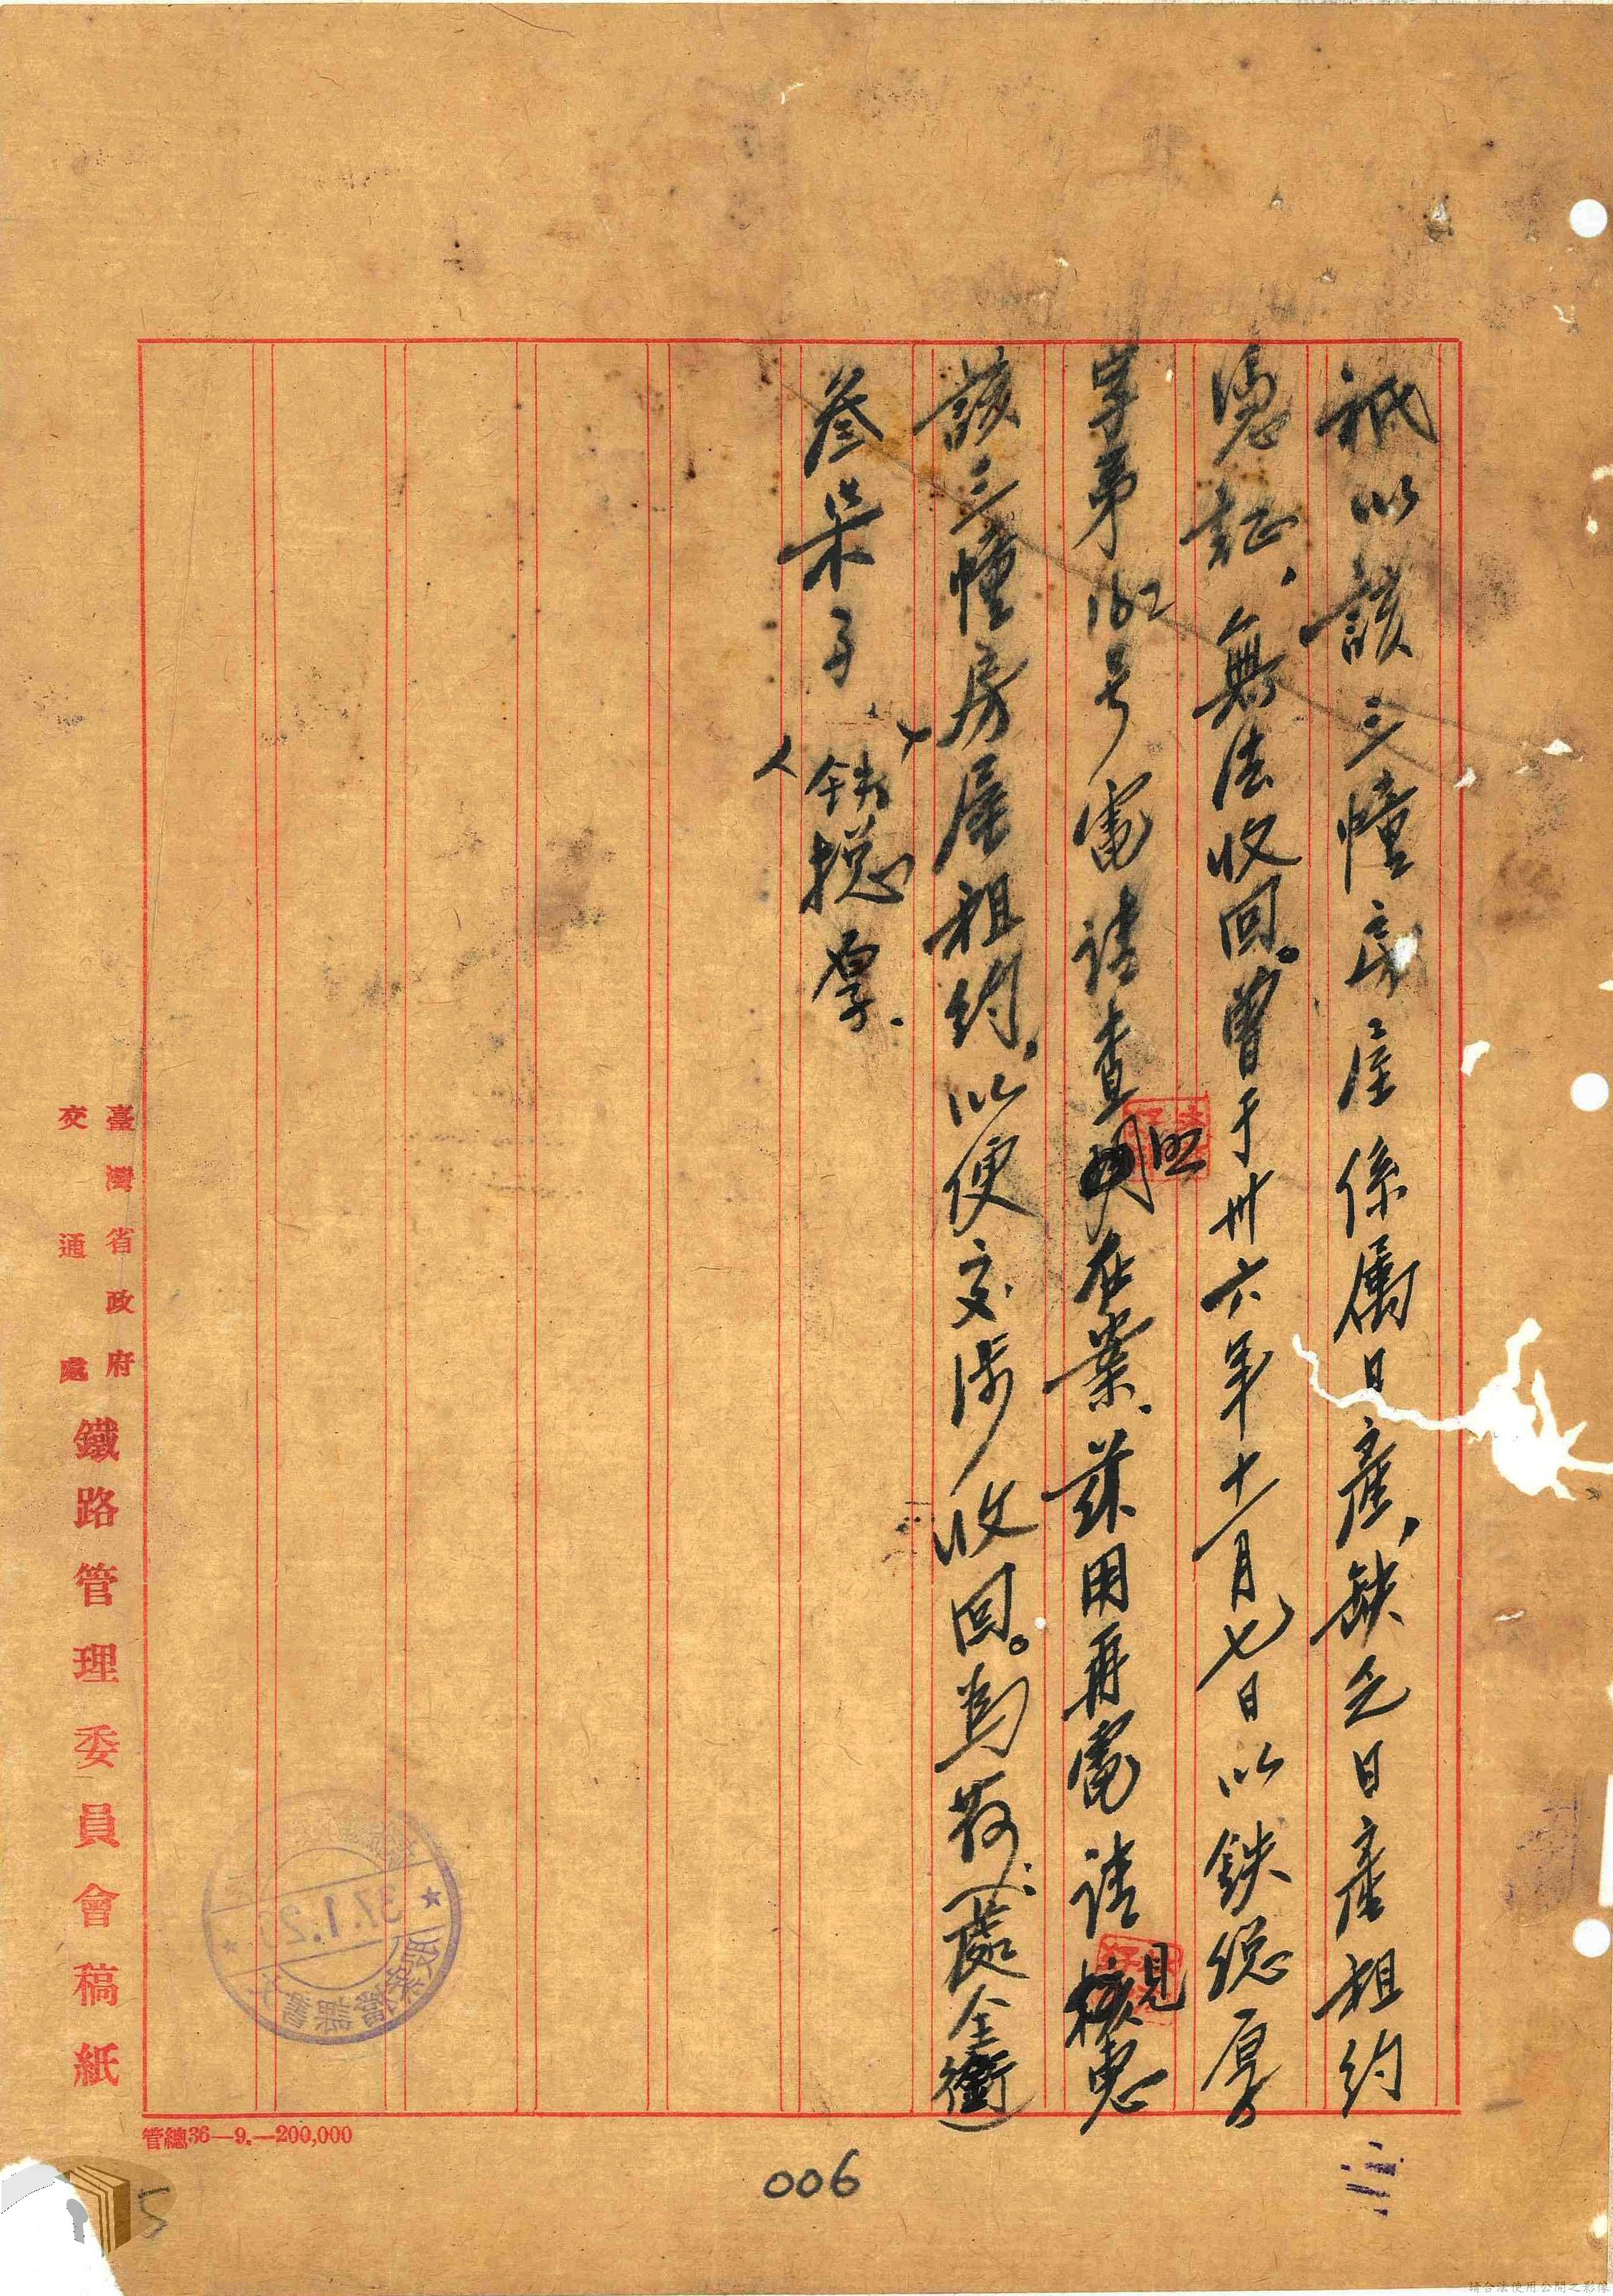 祇以該三幢房屋係屬日產，缺乏日產租約
憑証，無法收回。曾于卅六年十一月七日以鉄總厚
字第162号電請查照在案、茲用再電請見惠
該三幢房屋租約，以便交涉收回。為荷、（處全銜）
叄　子　鉄總厚.
臺灣省政府
交通處
鐵路管理委員會稿紙
管總36—9.—200,000
37.1.2
006
5